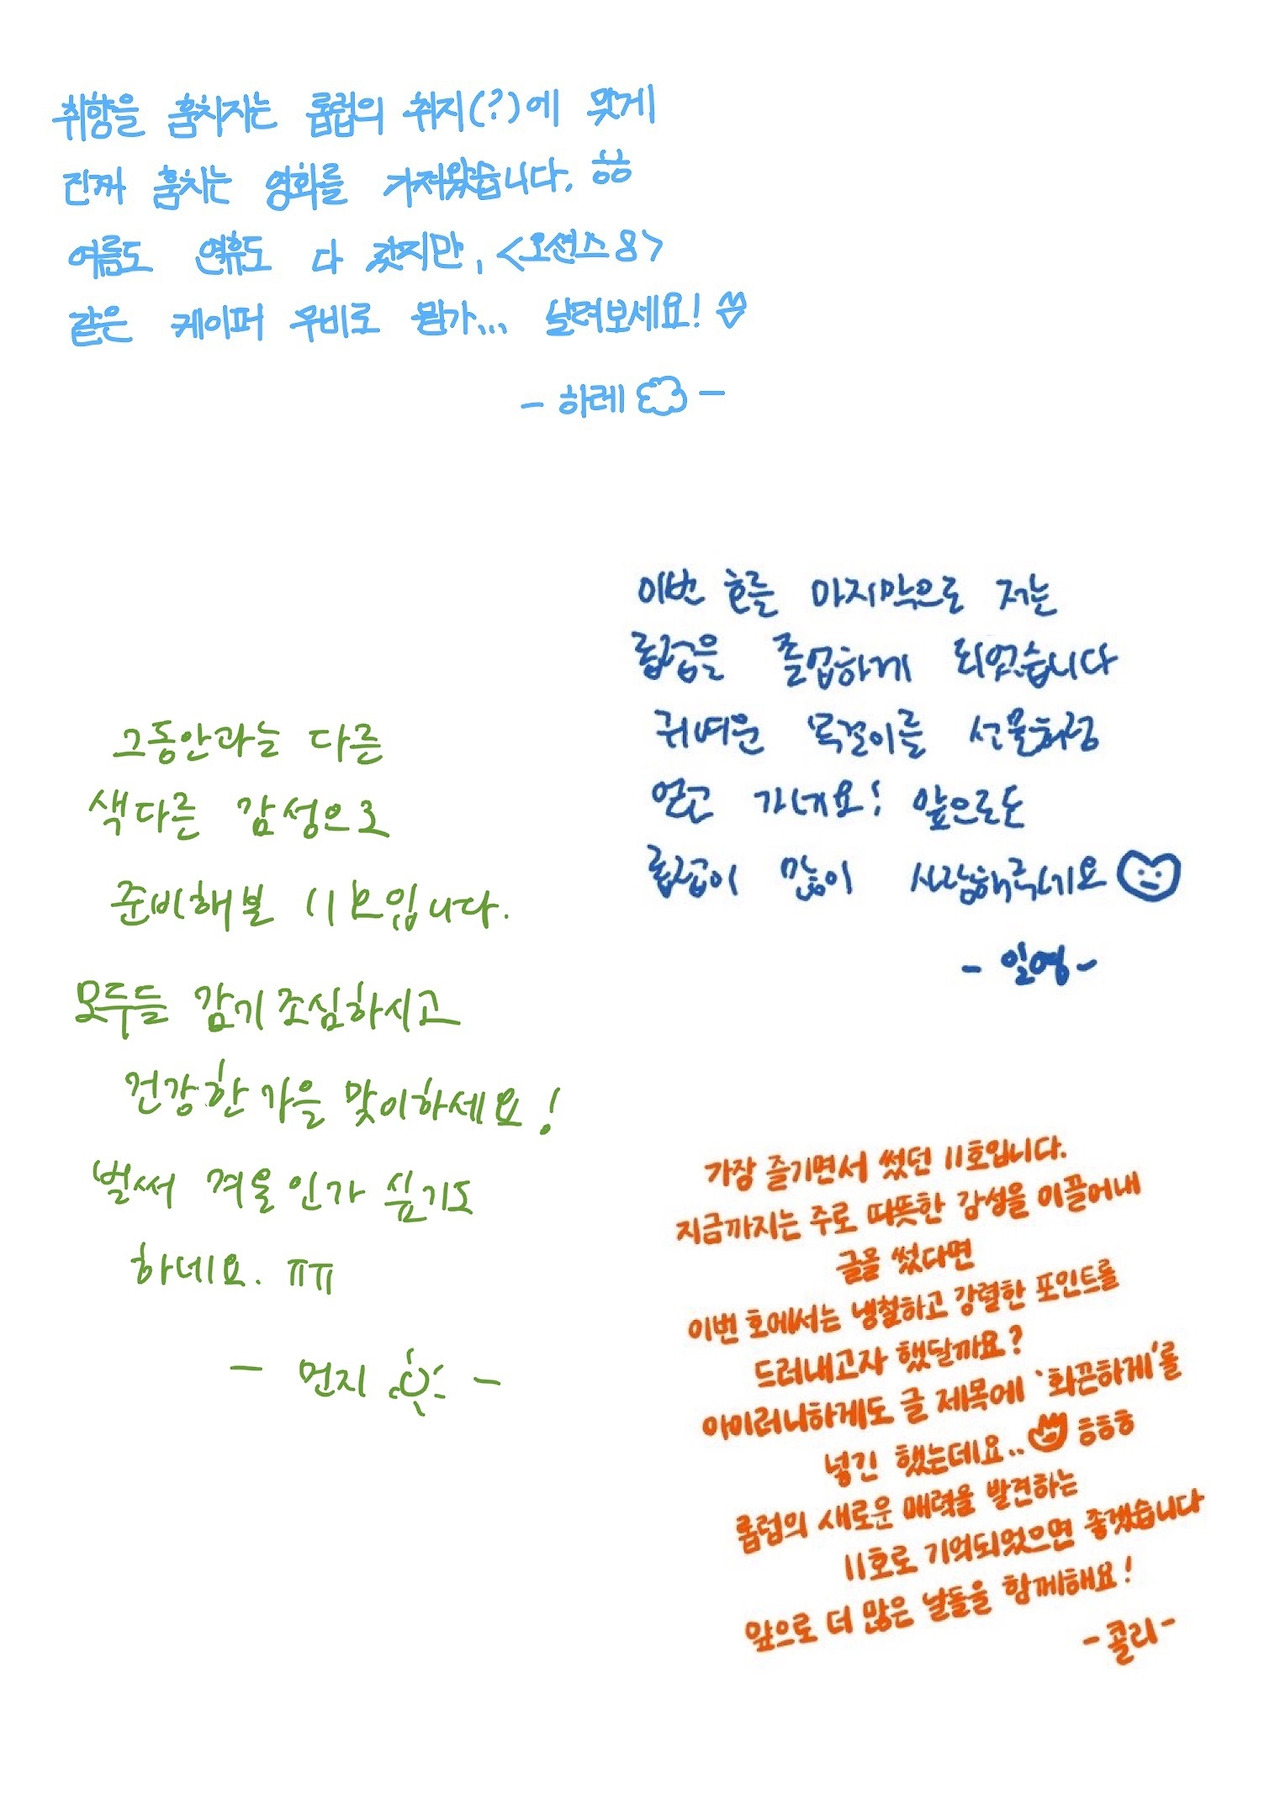 취향을 훔치자는 롭럽의 취지(?)에 맞게
진짜 훔치는 영화를 가져왔습니다. ㅎㅎ
여름도 연휴도 다 갔지만, <오션스8>
같은 케이퍼 무비로 뭔가... 날려보세요!
- 하레 -
이번 호를 마지막으로 저는
롭럽을 졸업하게 되었습니다
귀여운 목걸이를 선물처럼
얻고 가네요! 앞으로도
롭럽이 많이 사랑해주세요
- 일영 -
그동안과는 다른
색다른 감성으로
준비해본 11호입니다.
모두들 감기 조심하시고
건강한 가을 맞이하세요!
벌써 겨울인가 싶기도
하네요. ㅠㅠ
- 먼지 -
가장 즐기면서 썼던 11호입니다.
지금까지는 주로 따뜻한 감성을 이끌어내
글을 썼다면
이번 호에서는 냉철하고 강렬한 포인트를
드러내고자 했달까요?
아이러니하게도 글 제목에 '화끈하게'를
넣긴 했는데요.. ㅎㅎㅎ
롭럽의 새로운 매력을 발견하는
11호로 기억되었으면 좋겠습니다
앞으로 더 많은 날들을 함께해요!
- 콜리 -